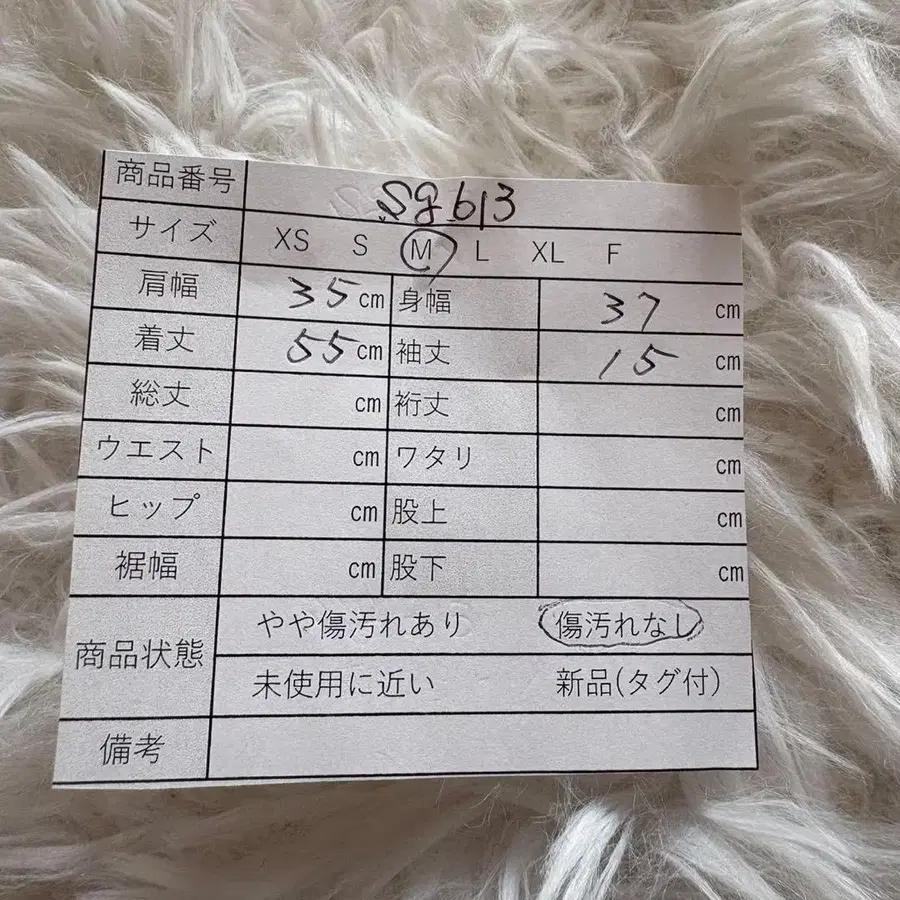 商品番号 sg613
サイズ XS S M L XL F
肩幅 35cm 身幅 37 cm
着丈 55cm 袖丈 15 cm
総丈 cm 裄丈 cm
ウエスト cm ワタリ cm
ヒップ cm 股上 cm
裾幅 cm 股下 cm
商品状態 やや傷汚れあり 傷汚れなし
未使用に近い 新品(タグ付)
備考